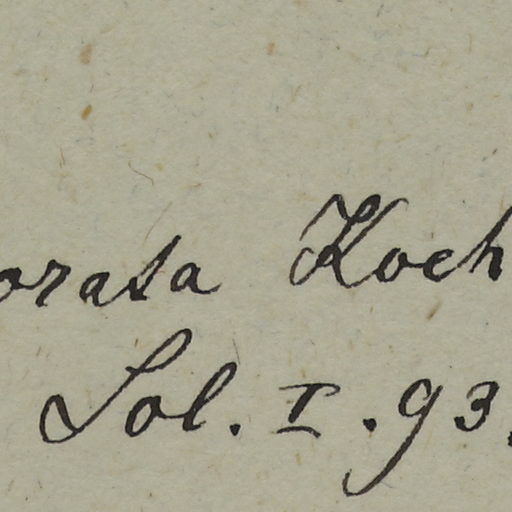 orata Koch
Sol. I. 93.